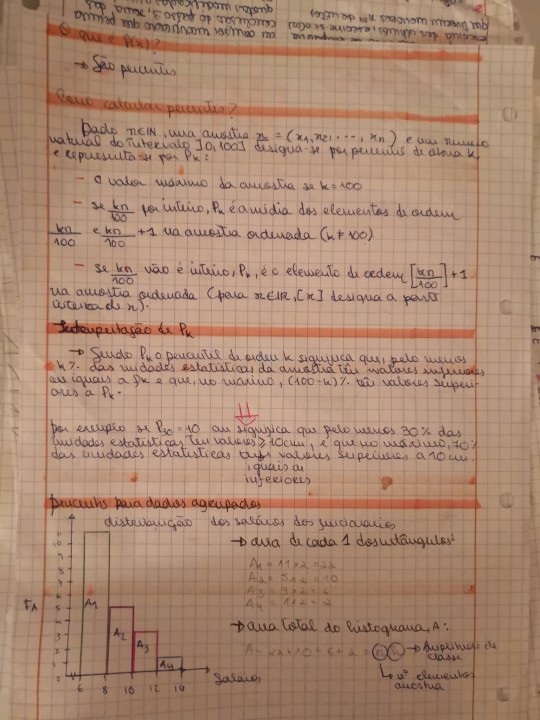 O que é P(x)?
→ São percentis
Como calcular percentis?
Dado n∈IN, uma amostra x = (x1, x2, ..., xn) e um número
natural do intervalo ]0,100] designa-se por percentil de
e representa-se por Pk:
- O valor máximo da amostra se k=100
- se kn/100 for inteiro, Pk é a média dos elementos de ordem
kn/100 e kn/100 +1 na amostra ordenada (k≠100)
- se kn/100 não é inteiro, Pk, é o elemento de ordem [kn/100]+1
na amostra ordenada (para x∈IR, [x] designa a parte
inteira de x).
Interpretação de Pk
→ Sendo Pk o percentil de ordem k significa que, pelo menos
k% das unidades estatísticas da amostra têm valores inferiores
ou iguais a Pk e que, no máximo, (100-k)% têm valores superi-
ores a Pk.
por exemplo se P30=10 cm significa que pelo menos 30% das
unidades estatísticas têm valores 10cm, e que no máximo, 70%
das unidades estatísticas valores superiores a 10 cm.
iguais ou
inferiores
percentis para dados agrupados
distribuição dos salários dos funcionários
→ área de cada 1 dos retângulos:
A1 = 11x2 = 22
A2 = 5x2 = 10
A3 = 3x2 = 6
A4 = 1x2 = 2
→ área total do histograma, A:
A = 22+10+6+2 = n h → Amplitude de
classe
↳ nº elementos
amostra
FA
11
10
9
8
7
6
5
4
3
2
1
0
A1
A2
A3
A4
6 8 10 12 14
Salários